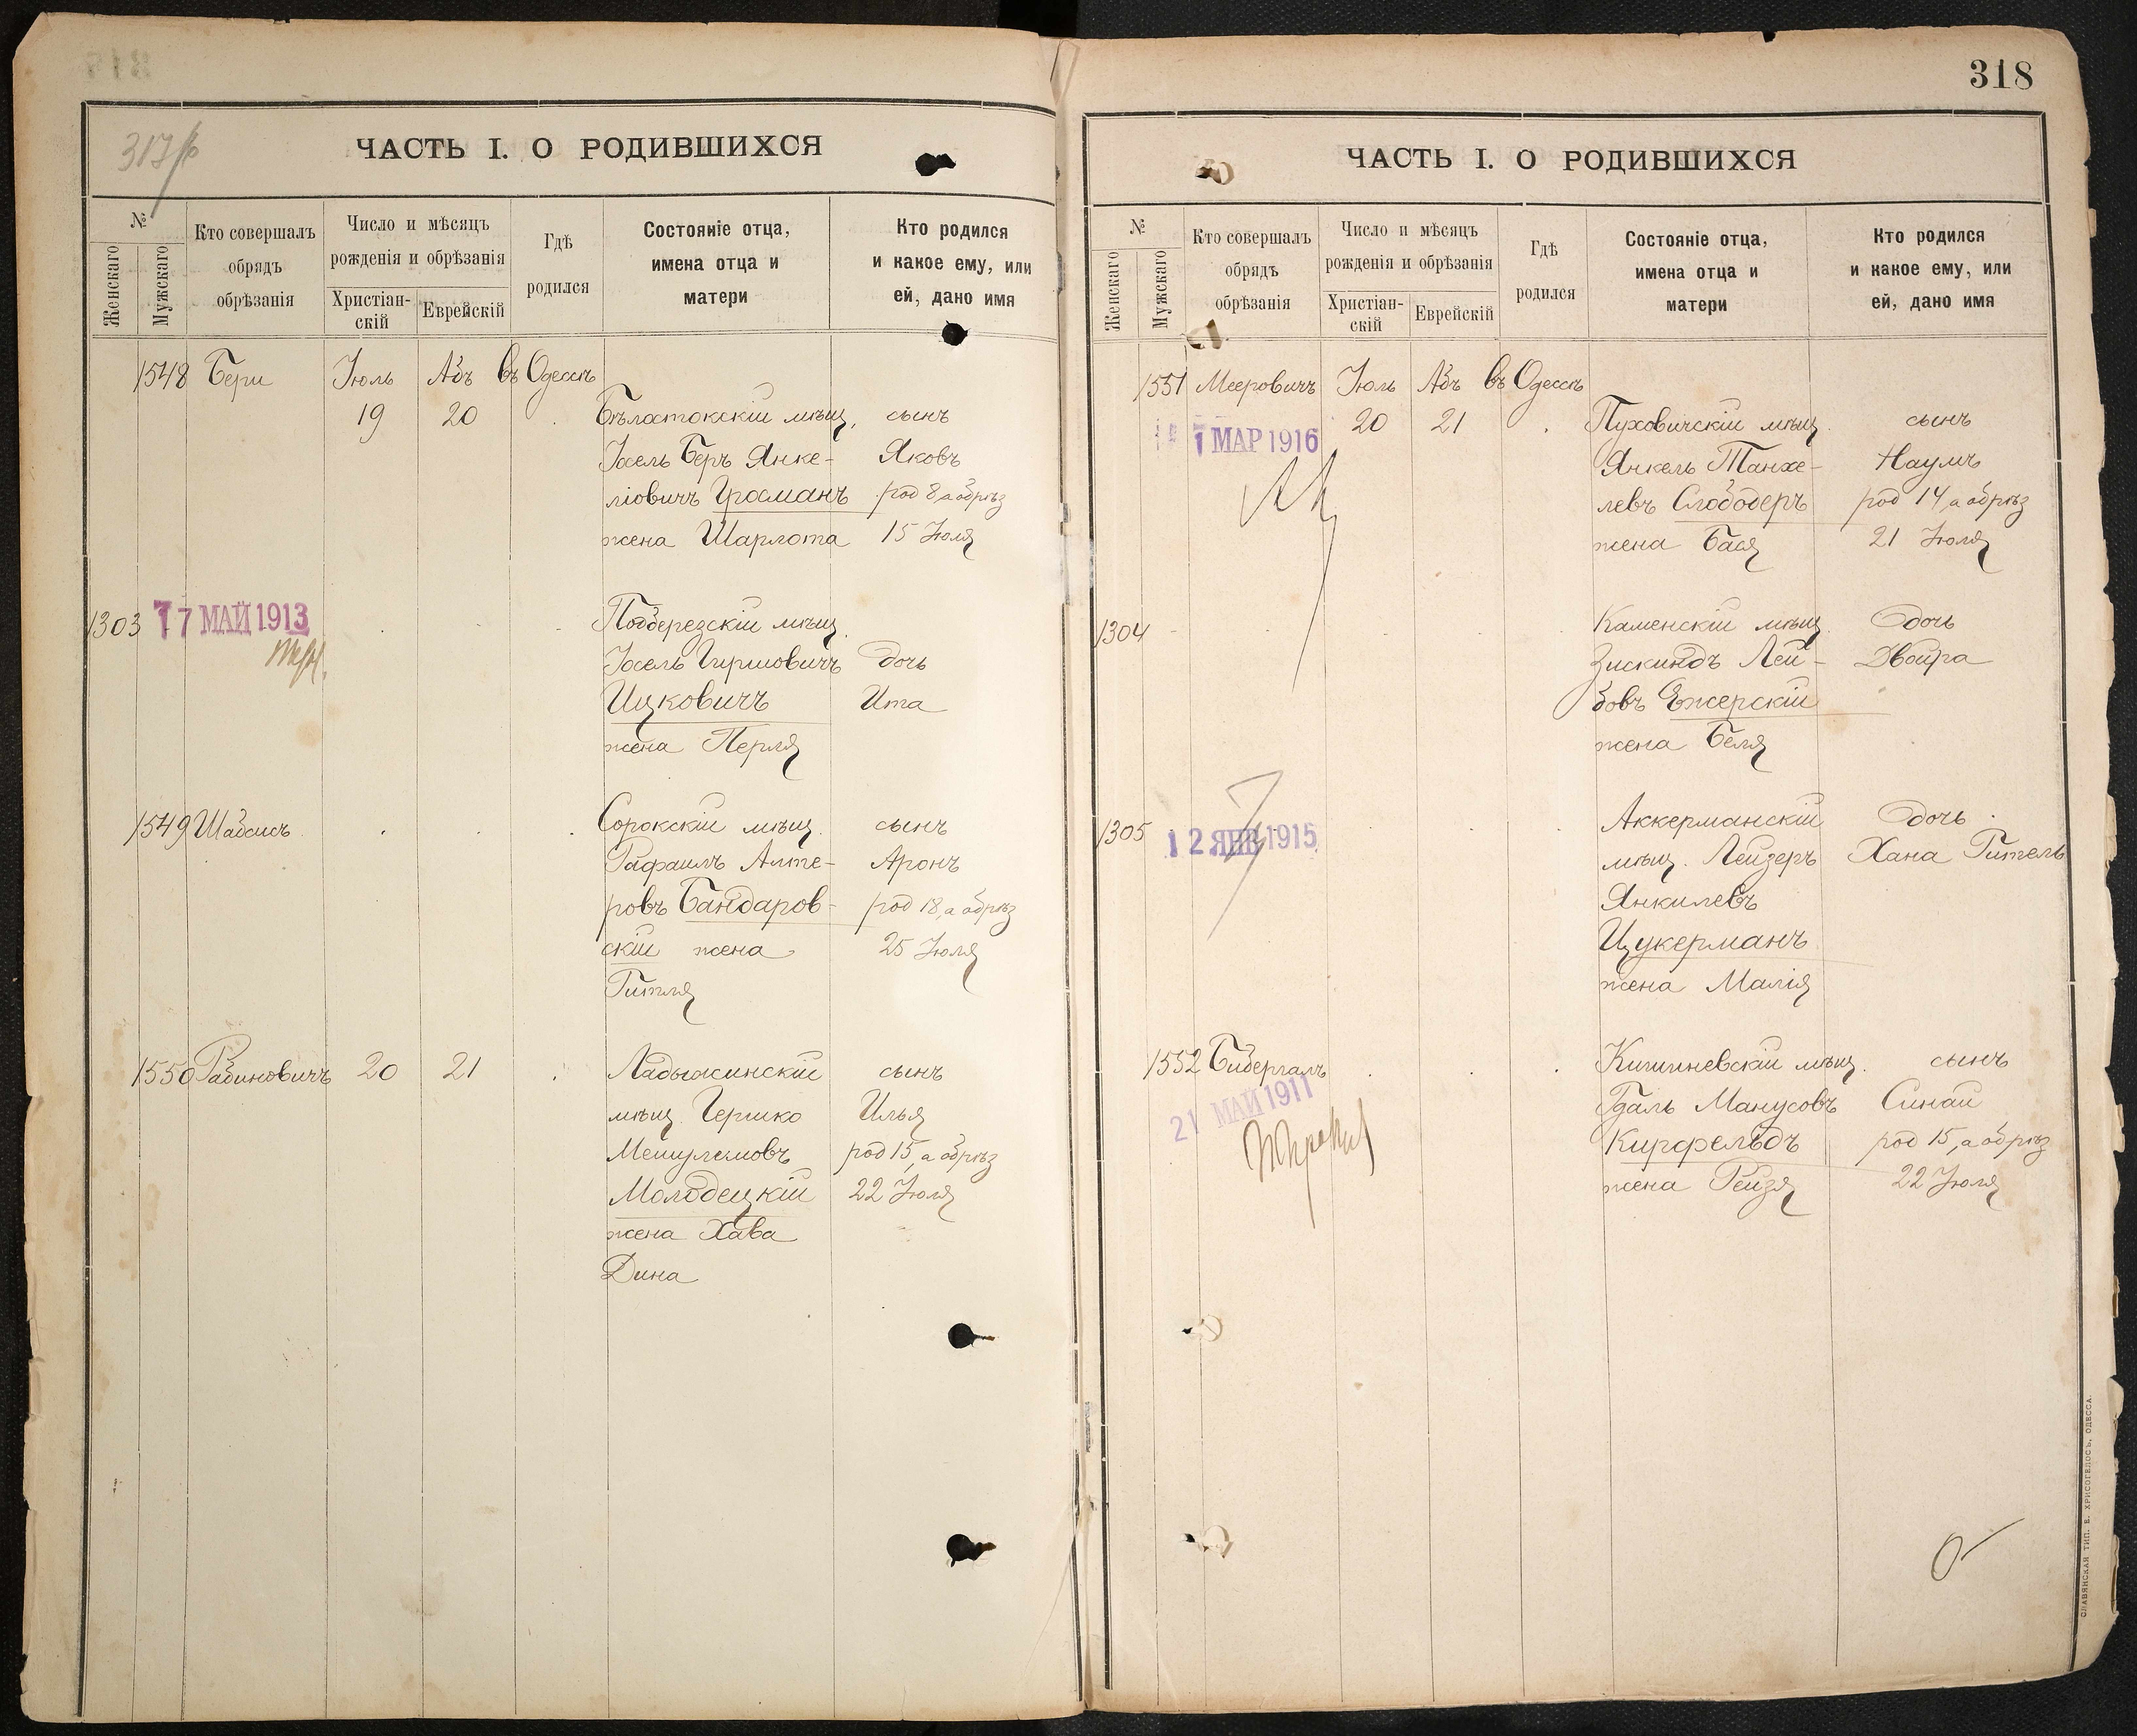 318
317/р
ЧАСТЬ I. О РОДИВШИХСЯ
№
Женскаго
Мужскаго
Кто совершалъ
обрядъ
обрѣзанія
Число и мѣсяцъ
рожденія и обрѣзанія
Христіан-
скій
Еврейскій
Гдѣ
родился
Состояніе отца,
имена отца и
матери
Кто родился
и какое ему, или
ей, дано имя
1548 Бери Іюль Абъ въ Одессѣ
19 20 Бѣлостокскій мѣщ. сынъ
Іосель Беръ Янке- Яковъ
ліовичъ Гросманъ род 8 а обрѣз
жена Шарлота 15 Іюля
1303 17 МАЙ 1913 Подберезскій мѣщ.
Іосель Гиршовичъ дочь
Ицковичъ Ита
жена Перля
1549 Шабсисъ Сорокскій мѣщ. сынъ
Рафаилъ Алте- Аронъ
ровъ Бандаров- род 18, а обрѣз
скій жена 25 Іюля
Гитля
1550 Рабиновичъ 20 21 Ладыжинскій сынъ
мѣщ. Гершко Илья
Мешулемовъ род 15, а обрѣз
Молодецкій 22 Іюля
жена Хава
Дина
ЧАСТЬ I. О РОДИВШИХСЯ
№
Женскаго
Мужскаго
Кто совершалъ
обрядъ
обрѣзанія
Число и мѣсяцъ
рожденія и обрѣзанія
Христіан-
скій
Еврейскій
Гдѣ
родился
Состояніе отца,
имена отца и
матери
Кто родился
и какое ему, или
ей, дано имя
1551 Мееровичъ Іюль Абъ въ Одессѣ
7 МАР 1916 20 21 Пуховичскій мѣщ. сынъ
Янкель Танхе- Наумъ
левъ Слободеръ род 14, а обрѣз
жена Бася 21 Іюля
1304 Каменскій мѣщ. дочь
Зискиндъ Лей- Двойра
бовъ Езжерскій
жена Беля
1305 12 ЯНВ 1915 Аккерманскій дочь
мѣщ. Лейзеръ Хана Гитель
Янкилевъ
Цукерманъ
жена Малія
1552 Бибергалъ Кишиневскій мѣщ. сынъ
21 МАЙ 1911 Гдаль Манусовъ Синай
Кирфельдъ род 15, а обрѣз
жена Рейзя 22 Іюля
СЛАВЯНСКАЯ ТИП. Е. ХРИСОГЕЛОСЪ, ОДЕССА.